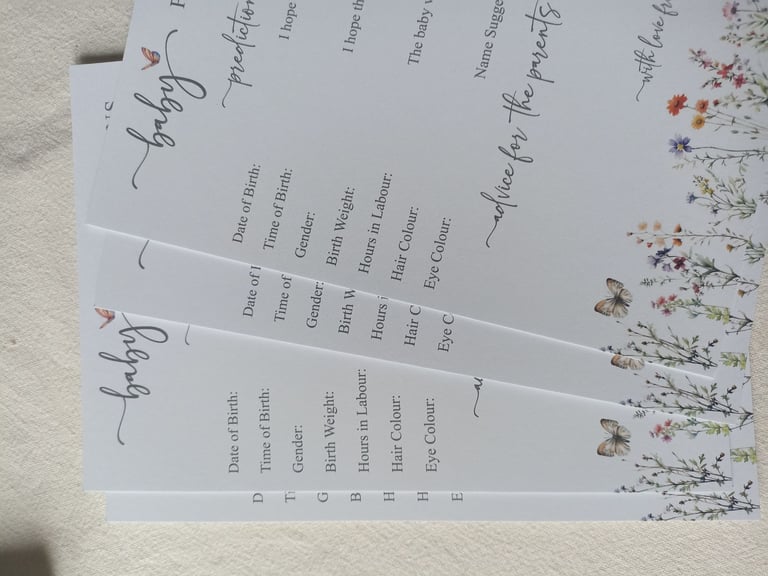 baby
prediction
Date of Birth: I hope
Time of Birth:
Gender: I hope th
Birth Weight:
Hours in Labour: The baby w
Hair Colour:
Eye Colour: Name Sugge
advice for the parents
with love fr
Date of
Time of
Gender:
Birth W
Hours i
Hair C
Eye C
baby
Date of Birth:
Time of Birth:
Gender:
Birth Weight:
Hours in Labour:
Hair Colour:
Eye Colour:
D
Ti
G
B
H
H
E